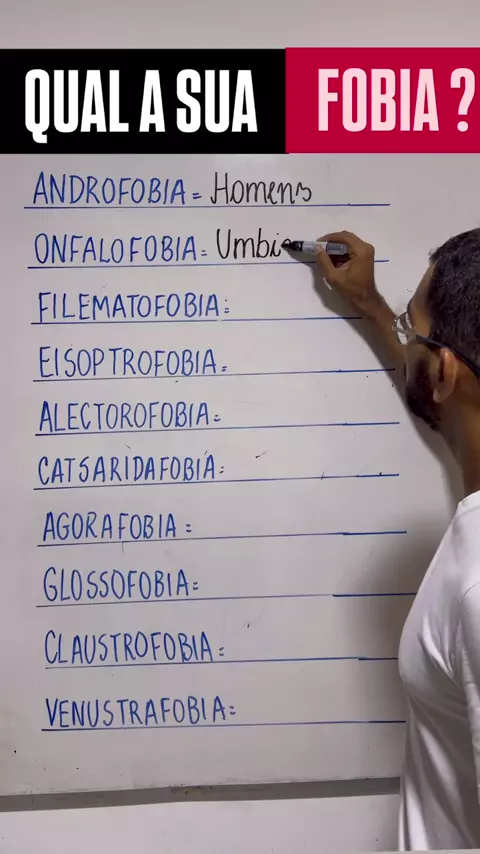 QUAL A SUA FOBIA ?
ANDROFOBIA = Homens
ONFALOFOBIA = Umbi
FILEMATOFOBIA =
EISOPTROFOBIA =
ALECTOROFOBIA =
CATSARIDAFOBIA =
AGORAFOBIA =
GLOSSOFOBIA =
CLAUSTROFOBIA =
VENUSTRAFOBIA =